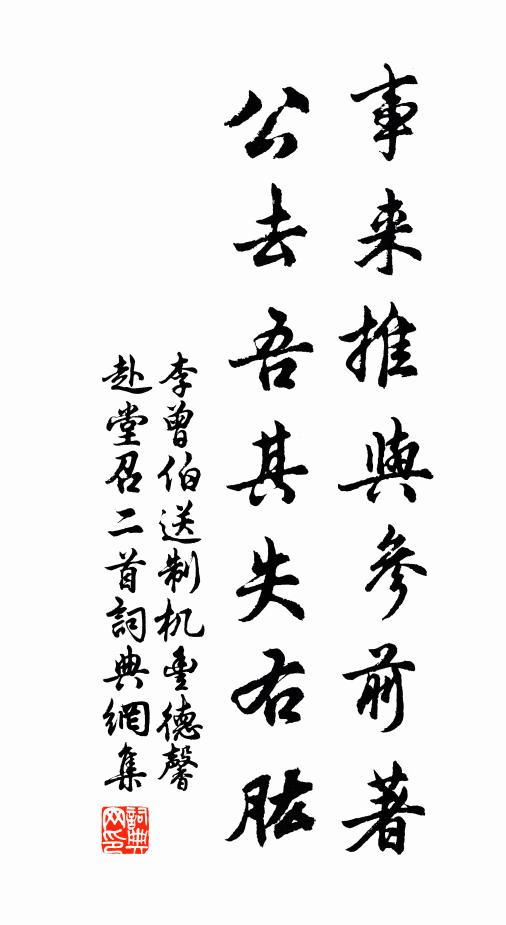 事来推與參前著
公去吾其失右肱
李曾伯送制机豊德馨
赴堂召二首詞典網集
詞典网印